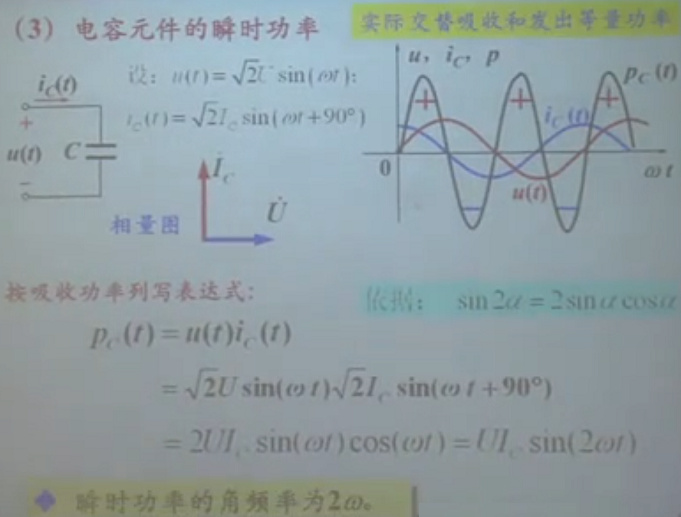 (3) 电容元件的瞬时功率
实际交替吸收和发出等量功率
设: u(t)=√2U sin(ωt);
i_C(t)=√2I_C sin(ωt+90°)
i_C(t)
+
u(t) C
−
İ_C
U̇
相量图
u, i_C, p
p_C(t)
+ + +
i_C(t)
0
ωt
u(t)
− −
按吸收功率列写表达式:
依据: sin2α=2sinαcosα
p_C(t)=u(t)i_C(t)
=√2U sin(ωt)√2I_C sin(ωt+90°)
=2UI_C sin(ωt)cos(ωt)=UI_C sin(2ωt)
瞬时功率的角频率为2ω。